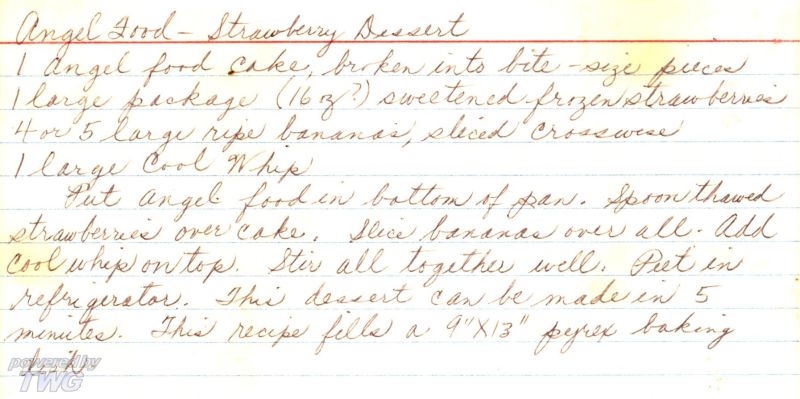 Angel Food - Strawberry Dessert
1 angel food cake, broken into bite-size pieces
1 large package (16 oz?) sweetened frozen strawberries
4 or 5 large ripe bananas, sliced crosswise
1 large Cool Whip
Put angel food in bottom of pan. Spoon thawed
strawberries over cake. Slice bananas over all. Add
cool whip on top. Stir all together well. Put in
refrigerator. This dessert can be made in 5
minutes. This recipe fills a 9"X13" pyrex baking
powered by
TWG